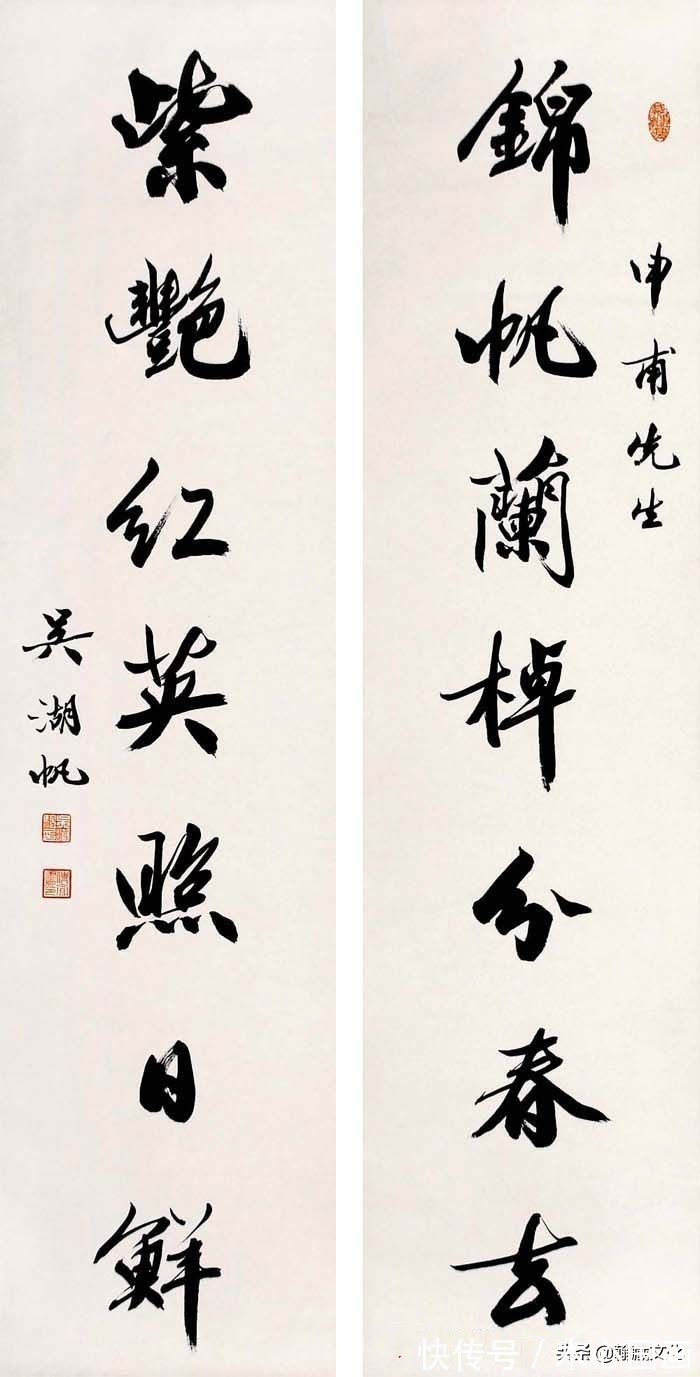 申甫先生
錦帆蘭棹分春去
紫豔红英照日鮮
吴湖帆
快传号
头条@翰墨文化